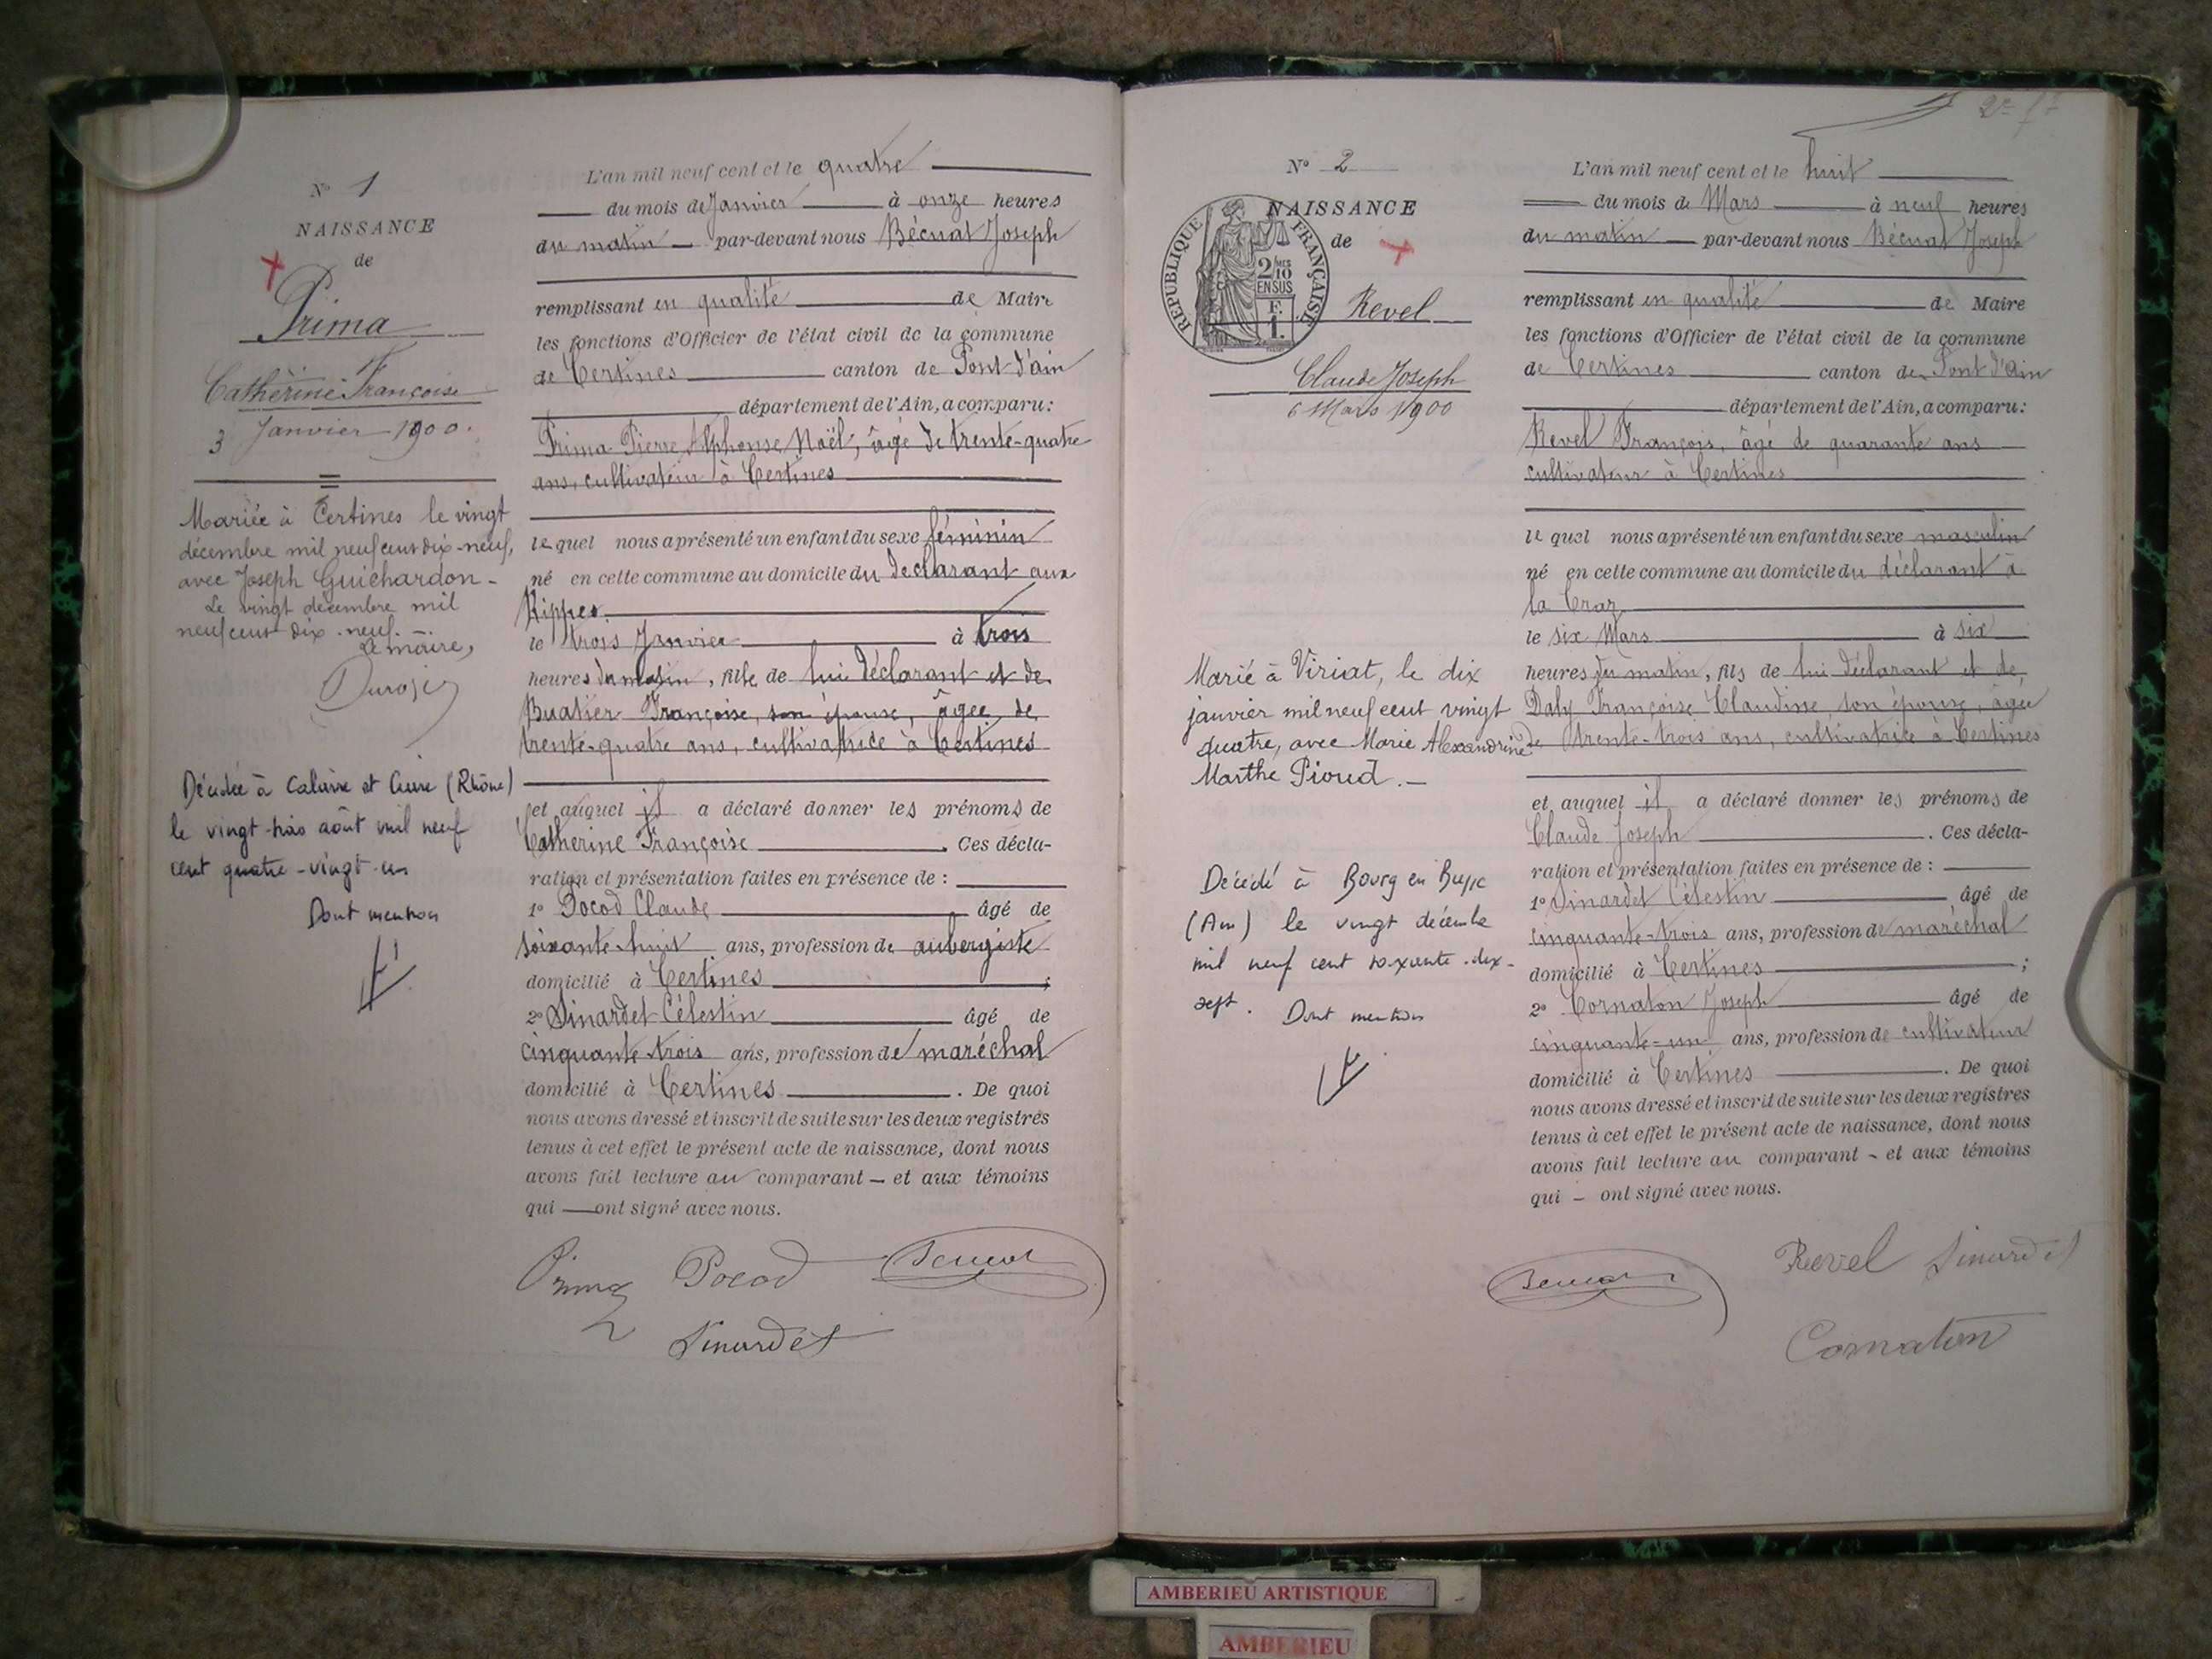 N° 1
NAISSANCE
de
Prima
Catherine Françoise
3 Janvier 1900.
Mariée à Certines le vingt
décembre mil neuf cent dix-neuf,
avec Joseph Guichardon -
Le vingt décembre mil
neuf cent dix-neuf.
Le maire,
Décédée à Caluire et Cuire (Rhône)
le vingt-trois août mil neuf
cent quatre-vingt-un
Dont mention
L'an mil neuf cent et le quatre
du mois de Janvier à onze heures
du matin par-devant nous Bécuat Joseph
remplissant en qualité de Maire
les fonctions d'Officier de l'état civil de la commune
de Certines canton de Pont-d'ain
département de l'Ain, a comparu:
Prima Pierre Alphonse Noël, âgé de trente-quatre
ans, cultivateur à Certines
le quel nous a présenté un enfant du sexe féminin
né en cette commune au domicile du déclarant aux
Rippes
le trois Janvier à trois
heures du matin, fille de lui déclarant et de
Buatier Françoise, son épouse, âgée de
trente-quatre ans, cultivatrice à Certines
et auquel il a déclaré donner les prénoms de
Catherine Françoise . Ces décla-
ration et présentation faites en présence de :
1° Pocod Claude âgé de
soixante-huit ans, profession de aubergiste
domicilié à Certines ;
2° Sinardet Célestin âgé de
cinquante-trois ans, profession de maréchal
domicilié à Certines . De quoi
nous avons dressé et inscrit de suite sur les deux registres
tenus à cet effet le présent acte de naissance, dont nous
avons fait lecture au comparant - et aux témoins
qui ont signé avec nous.
Prima Pocod Bécuat
Sinardet
N° 2
NAISSANCE
de
REPUBLIQUE FRANÇAISE
2/10 MES
EN SUS
F.
1.
Revel
Claude Joseph
6 Mars 1900
Marié à Viriat, le dix
janvier mil neuf cent vingt
quatre, avec Marie Alexandrine
Marthe Pioud. -
Décédé à Bourg en Bresse
(Ain) le vingt décembre
mil neuf cent soixante-dix-
sept. Dont mention
L'an mil neuf cent et le huit
du mois de Mars à neuf heures
du matin par-devant nous Bécuat Joseph
remplissant en qualité de Maire
les fonctions d'Officier de l'état civil de la commune
de Certines canton de Pont d'Ain
département de l'Ain, a comparu:
Revel François, âgé de quarante ans
cultivateur à Certines
le quel nous a présenté un enfant du sexe masculin
né en cette commune au domicile du déclarant à
la Craz
le six Mars à six
heures du matin, fils de lui déclarant et de
Daly Françoise Claudine, son épouse, âgée
de trente-trois ans, cultivatrice à Certines
et auquel il a déclaré donner les prénoms de
Claude Joseph . Ces décla-
ration et présentation faites en présence de :
1° Sinardet Célestin âgé de
cinquante-trois ans, profession de maréchal
domicilié à Certines ;
2° Cornaton Joseph âgé de
cinquante-un ans, profession de cultivateur
domicilié à Certines . De quoi
nous avons dressé et inscrit de suite sur les deux registres
tenus à cet effet le présent acte de naissance, dont nous
avons fait lecture au comparant - et aux témoins
qui - ont signé avec nous.
Bécuat Revel Sinardet
Cornaton
AMBERIEU ARTISTIQUE
AMBERIEU